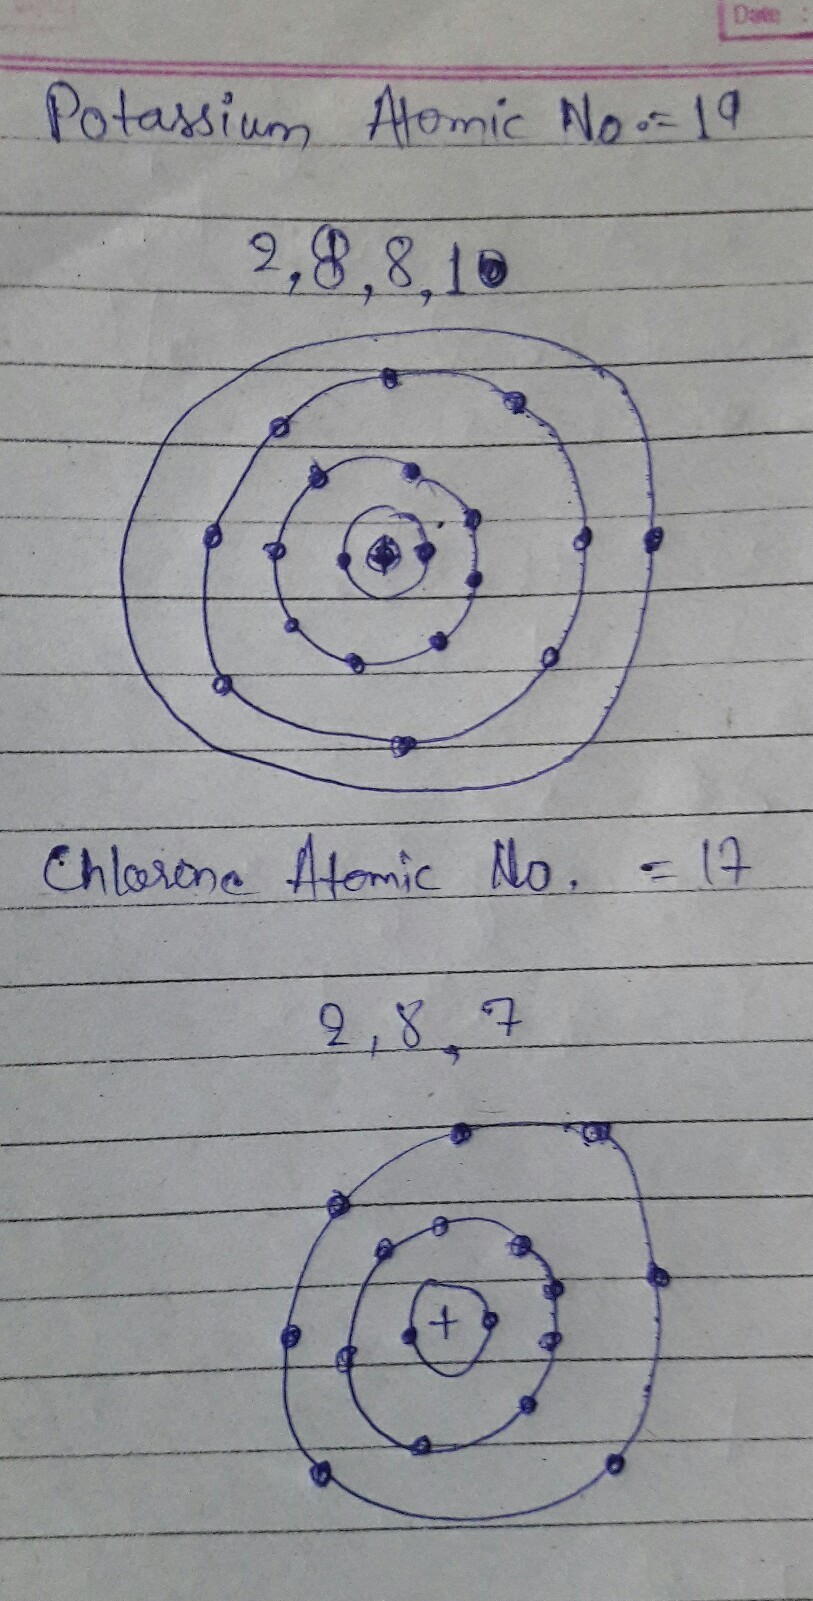 Date :
Potassium Atomic No. = 19
2, 8, 8, 1
Chlorene Atomic No. = 17
2, 8, 7
+